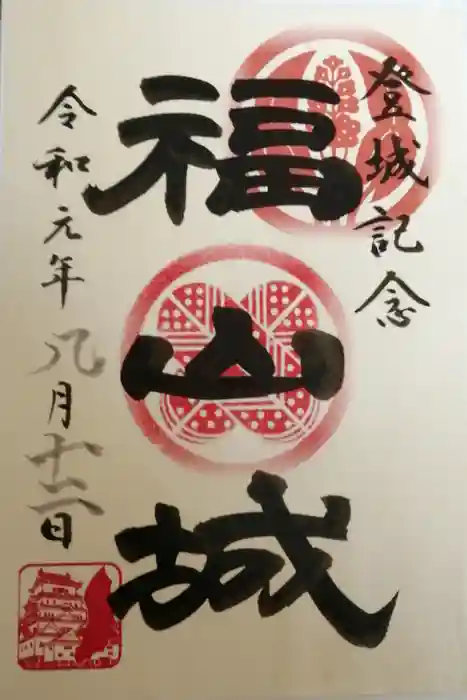 登城記念
福山城
令和元年八月十日